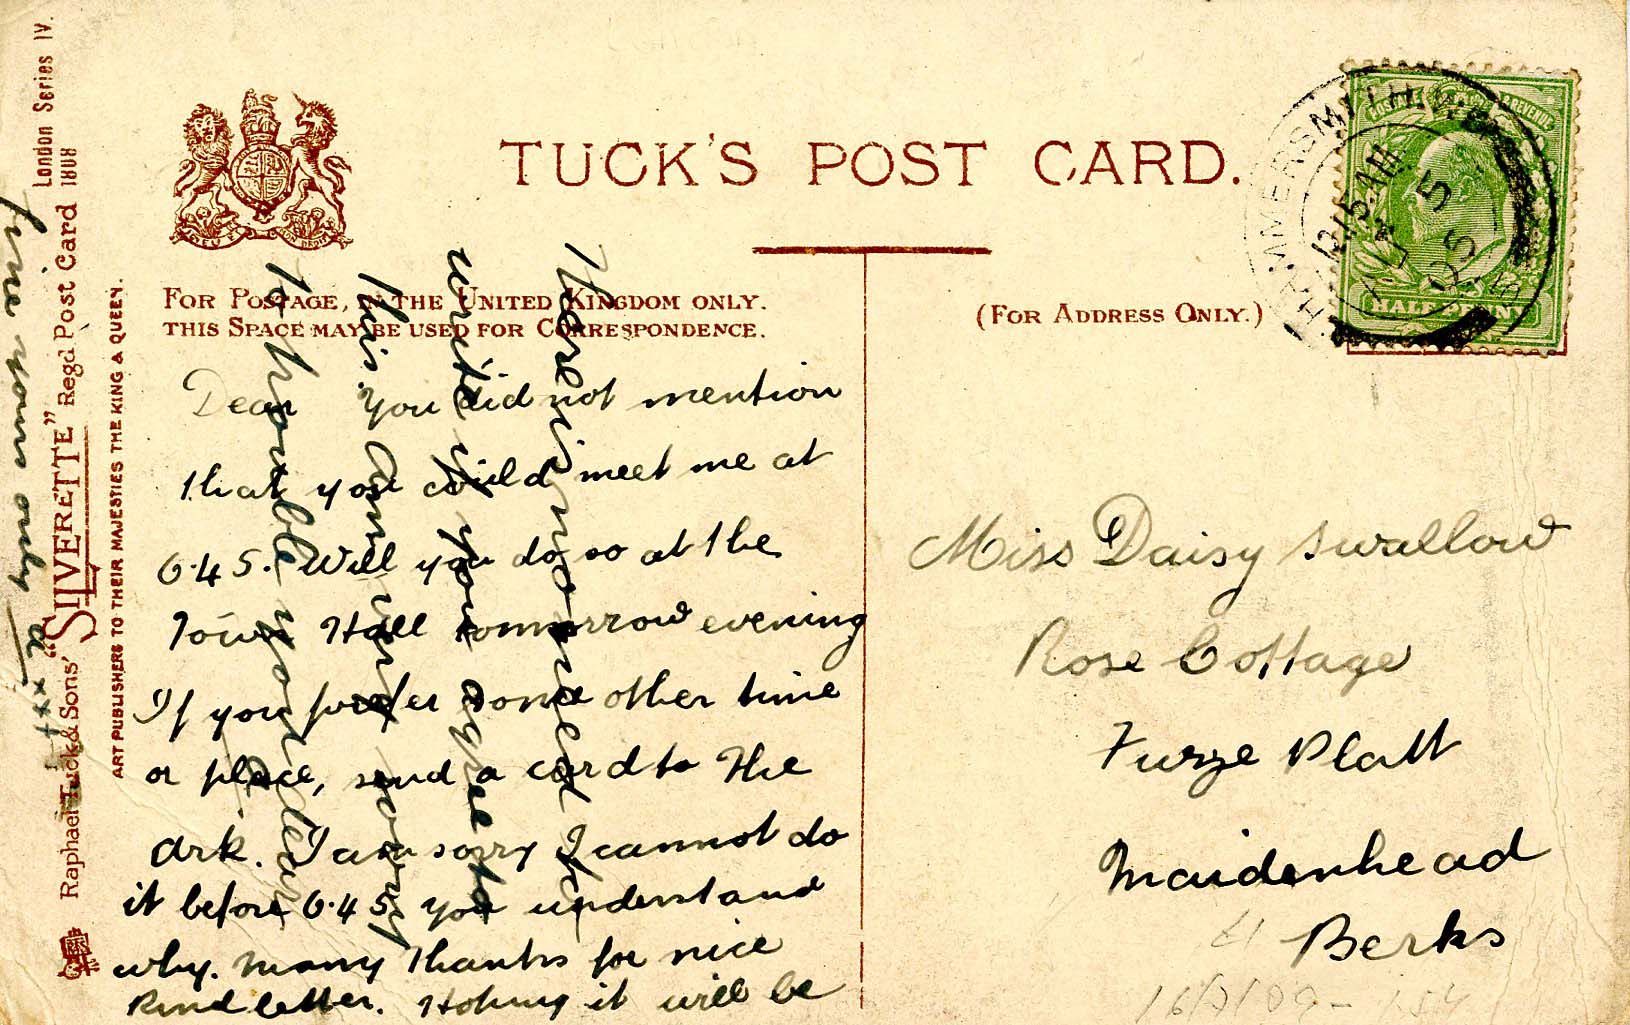 TUCK'S POST CARD.
FOR POSTAGE, IN THE UNITED KINGDOM ONLY.
THIS SPACE MAY BE USED FOR CORRESPONDENCE.
(FOR ADDRESS ONLY.)
Dear you did not mention
that you could meet me at
6.45. Will you do so at the
Town Hall tommorrow evening
If you prefer some other time
or place, send a card to the
Ark. I am sorry I cannot do
it before 6.45 you understand
why. Many thanks for nice
kind letter. Hoping it will be
fine yours only
a xxx
Here is no need to
write if you agree to
this. I am very sorry
to trouble you dear
Miss Daisy Swallow
Rose Cottage
Furze Platt
Maidenhead
Berks
HAMMERSMITH
12.15 AM
5
05
POSTAGE & REVENUE
HALF PENNY
London Series IV.
Raphael Tuck & Sons' "SILVERETTE" Reg'd Post Card 1888
ART PUBLISHERS TO THEIR MAJESTIES THE KING & QUEEN.